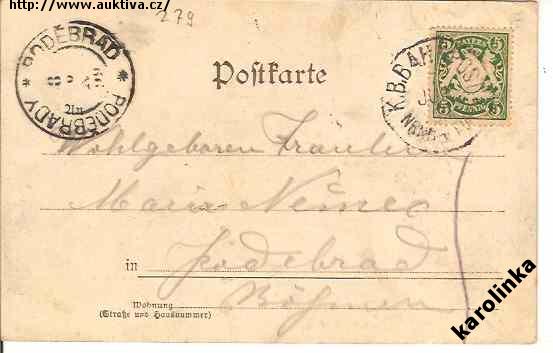 http://www.auktiva.cz/
279
PODĚBRAD * PODĚBRADY *
Postkarte
K.B.BAH
BAYERN
5 5
PFENNIG
5 5
Wohlgeboren Fräulein
Marie Němec
in Poděbrad
Böhmen
Wohnung
(Straße und Hausnummer)
karolinka